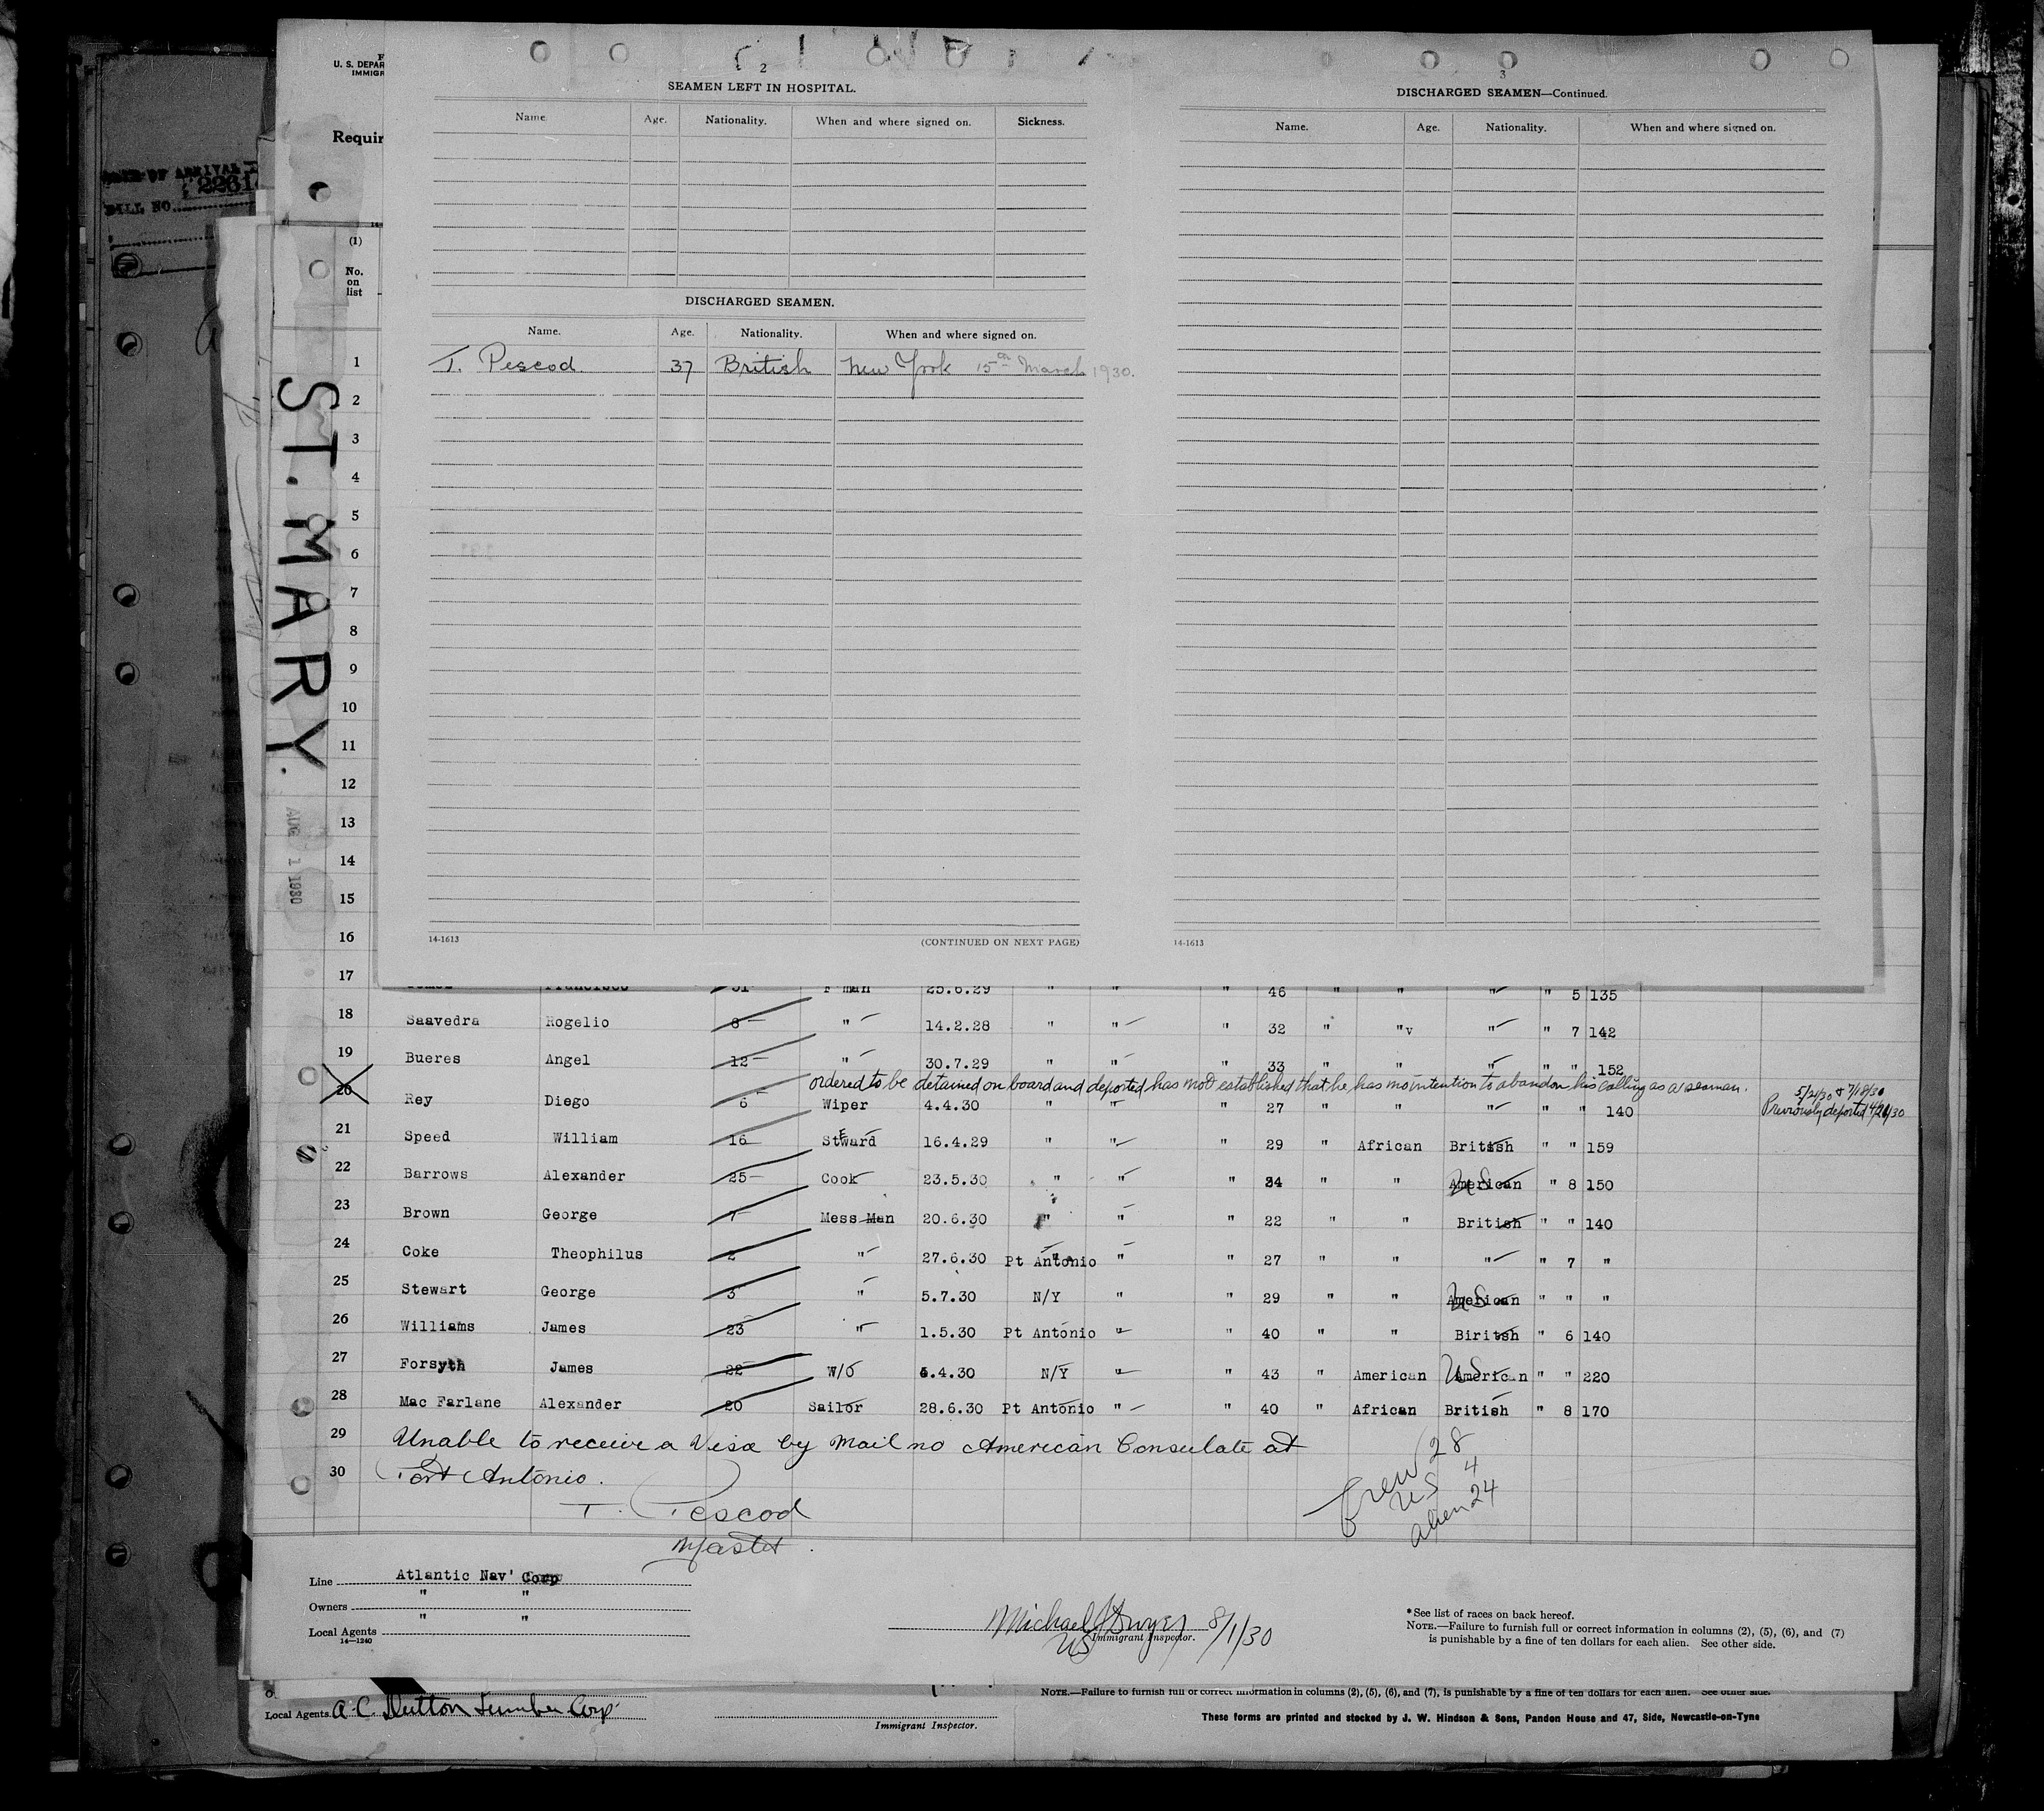 2
SEAMEN LEFT IN HOSPITAL.
Name. Age. Nationality. When and where signed on. Sickness.
DISCHARGED SEAMEN.
Name. Age. Nationality. When and where signed on.
T. Pescod. 37 British New York 15th March 1930.
14-1613 (CONTINUED ON NEXT PAGE)
3
DISCHARGED SEAMEN—Continued.
Name. Age. Nationality. When and where signed on.
14-1613
U. S. DEPAR
IMMIGR
Requir
BILL NO.
(1)
No.
on
list
ST. MARY.
AUG 1 1930
1
2
3
4
5
6
7
8
9
10
11
12
13
14
15
16
17 Francisco 31 F man 25.6.29 " " " 46 " " " " 5 135
18 Saavedra Rogelio 8 " 14.2.28 " " " 32 " "v " " 7 142
19 Bueres Angel 12 " 30.7.29 " " " 33 " " " " " 152
ordered to be detained on board and deported, has not established that he has no intention to abandon his calling as a seaman.
20 Rey Diego 6 Wiper 4.4.30 " " " 27 " " " " " 140
5/21/30 & 7/18/30
Previously deported
21 Speed William 16 StEward 16.4.29 " " " 29 " African British " " 159
22 Barrows Alexander 25 Cook 23.5.30 " " " 34 " " American US " 8 150
23 Brown George Mess Man 20.6.30 " " " 22 " " British " " 140
24 Coke Theophilus 2 " 27.6.30 Pt Antonio " " 27 " " " " 7 "
25 Stewart George 3 " 5.7.30 N/Y " " 29 " " American US " " "
26 Williams James 23 " 1.5.30 Pt Antonio " " 40 " " Biritsh " 6 140
27 Forsyth James 22 W/O 4.30 N/Y " " 43 " American American US " " 220
28 Mac Farlane Alexander 20 Sailor 28.6.30 Pt Antonio " " 40 " African British " 8 170
29 Unable to receive a Visa by Mail no American Consulate at
30 Port Antonio.
T. Pescod
Master.
Crew 28
US 4
alien 24
Line Atlantic Nav' Corp
Owners " "
Local Agents " "
14—1240
Michael J Dwyer 8/1/30
US Immigrant Inspector.
*See list of races on back hereof.
NOTE.—Failure to furnish full or correct information in columns (2), (5), (6), and (7)
is punishable by a fine of ten dollars for each alien. See other side.
NOTE.—Failure to furnish full or correct information in columns (2), (5), (6), and (7), is punishable by a fine of ten dollars for each alien. See other side.
Local Agents. A. C. Dutton Lumber Corp.
Immigrant Inspector.
These forms are printed and stocked by J. W. Hindson & Sons, Pandon House and 47, Side, Newcastle-on-Tyne